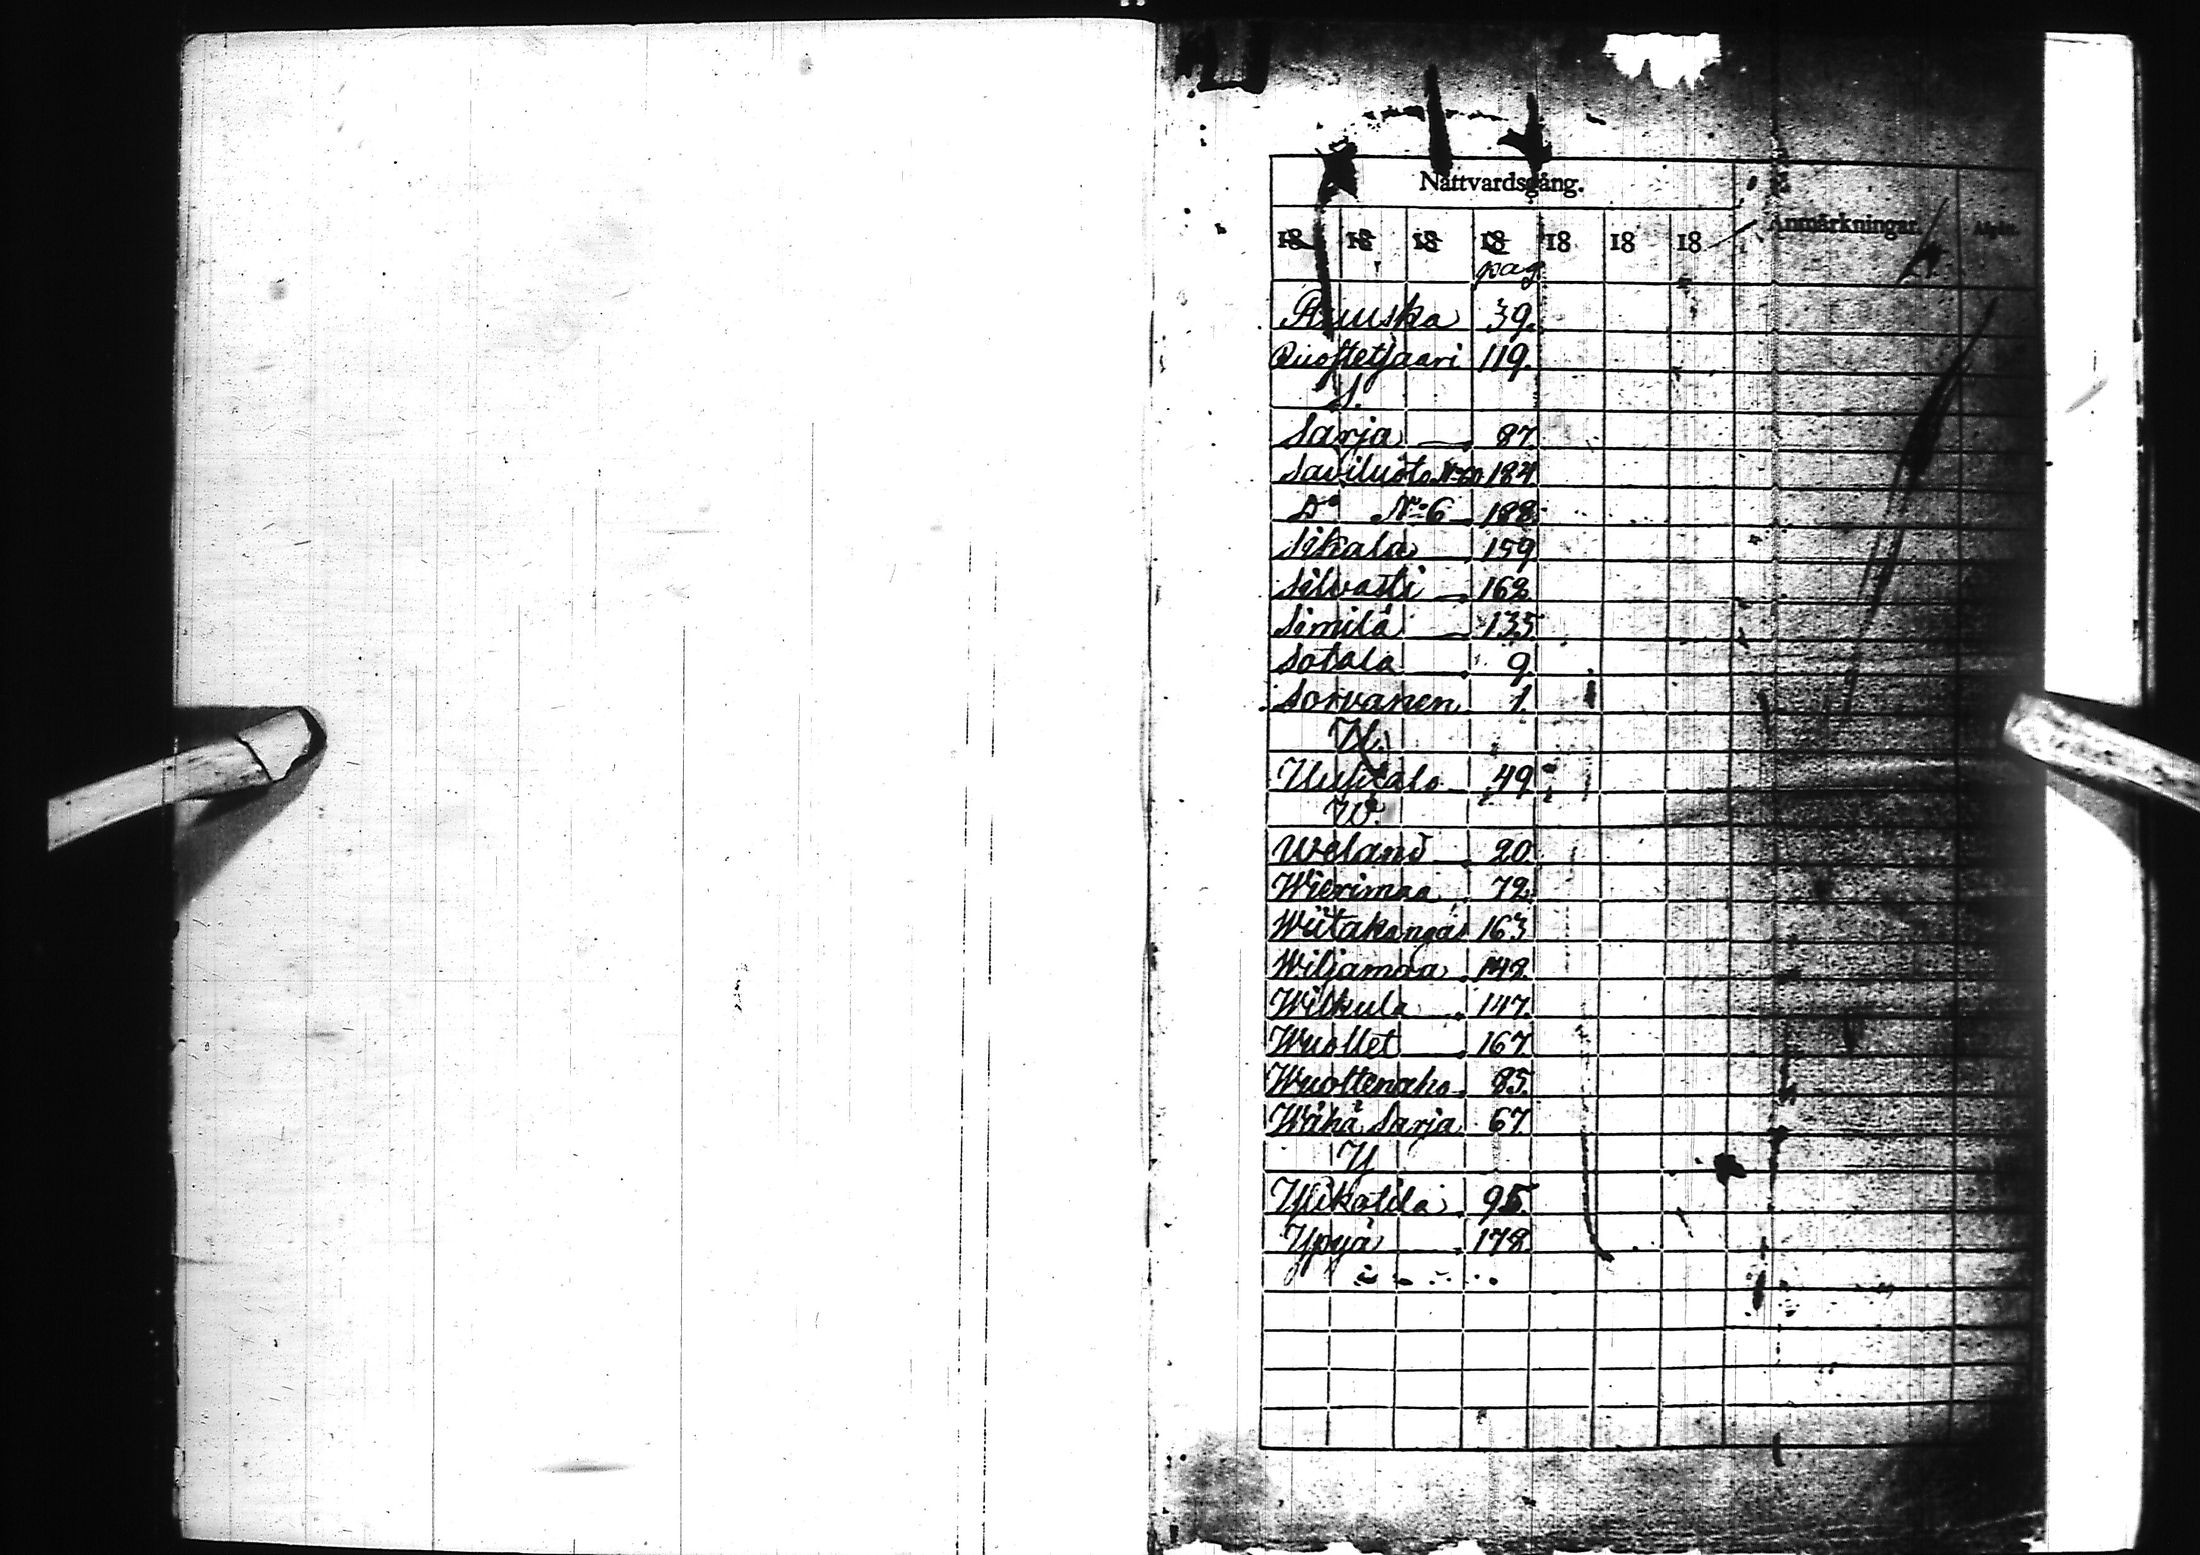 Nattvardsgång. Anmärkningar.
18 18 18 18 18 18 18
pag
Ruuska 39.
Ruostetsaari 119.
S.
Sarja 87.
Saviluoto 184
Do No 6 188.
Sikala 159
Silvasti 162
Similä 135
Sotala 9.
Sorvanen 1.
U.
Uusitalo 49
W.
Weland 20.
Wierimaa 72.
Wiitakangas 163
Wiljamaa 148.
Wilkula 147.
Wuollet 167
Wuoltenaho 85.
Wähä Sarja 67
Y
Ylikotila 95.
Ypyä 178